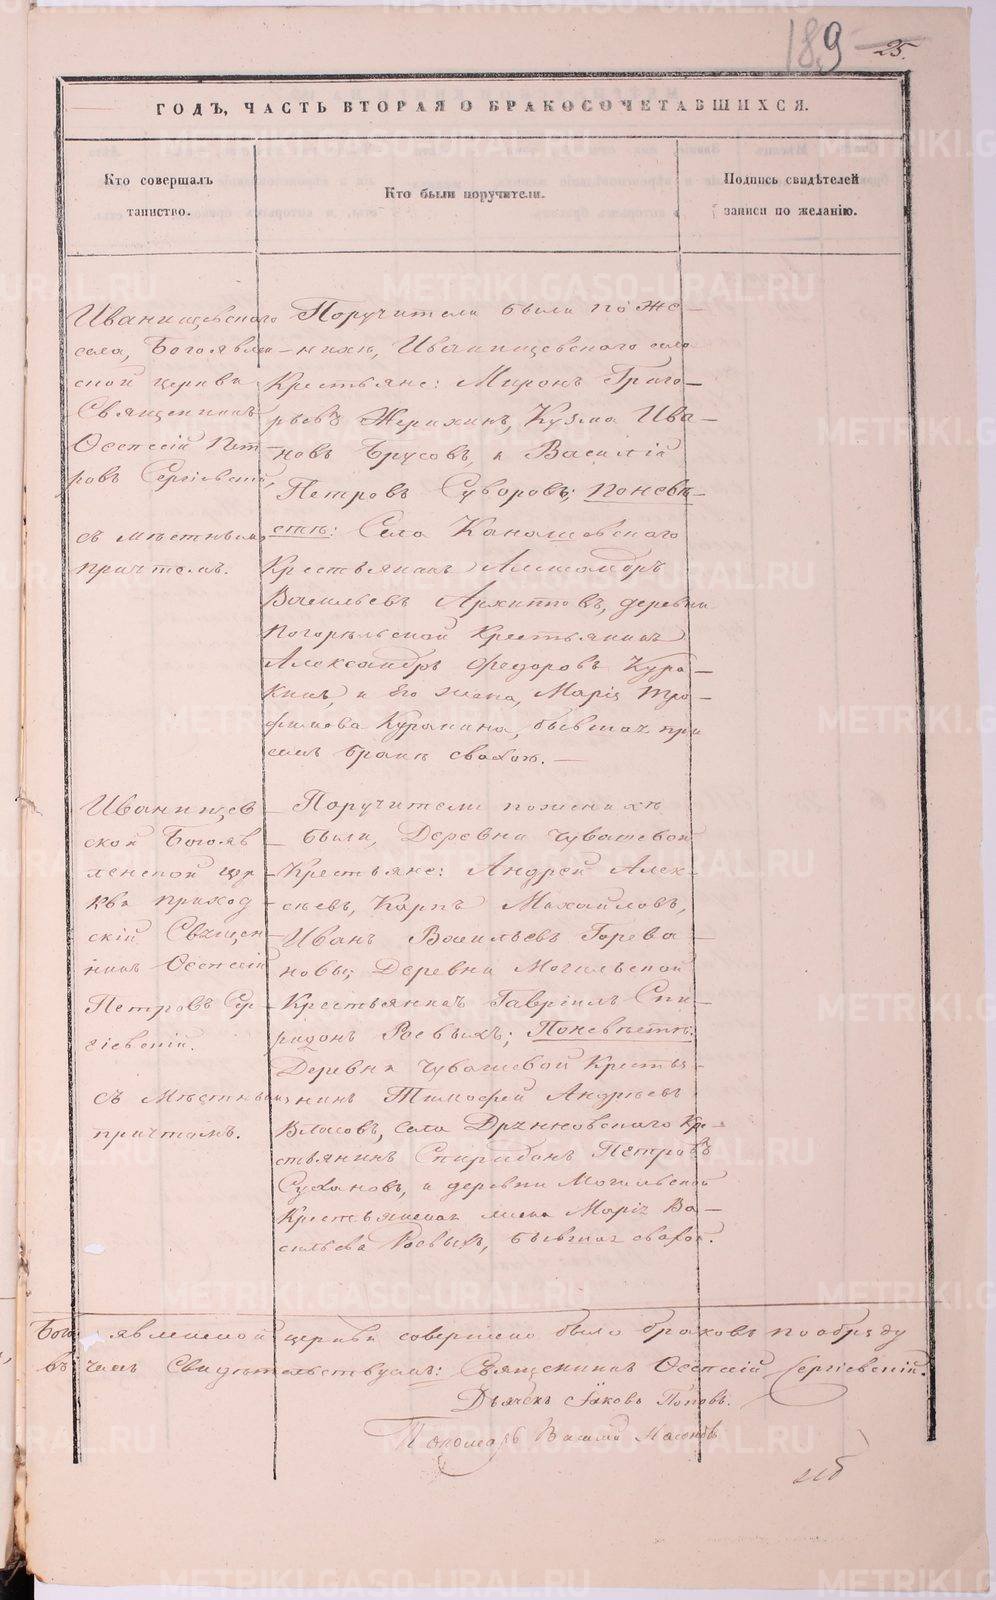 189 25.
ГОДЪ, ЧАСТЬ ВТОРАЯ О БРАКОСОЧЕТАВШИХСЯ.
Кто совершалъ
таинство.
Кто были поручители.
Подпись свидѣтелей
записи по желанію.
Иванищевскаго
села, Богоявлен-
ской церкви
Священникъ
Пет-
ровъ Сергіевскій,
съ мѣстнымъ
причтомъ.
Поручители были по же-
нихѣ, Иванищевскаго села
Крестьяне: Миронъ Григо-
рьевъ Жерихинъ, Кузма Ива-
новъ Брусовъ, и Василій
Петровъ Суворовъ; Поневѣ-
стѣ: Села Канашевскаго
Крестьянинъ Александръ
Васильевъ Архиповъ, деревни
Погорѣльской Крестьянинъ
Александръ Федоровъ Кура-
кинъ, и его жена, Марія Тро-
фимова Куракина, бывшая при
семъ бракѣ свахою.—
Иванищев
ской Богояв
ленской цер
кви приход
скій Священ
никъ
Петровъ Сер-
гіевскій.
съ Мѣстнымъ
причтомъ.
Поручители поженихѣ
были, Деревни Чувашевой
Крестьяне: Андрей Алек-
сѣевъ, Карпъ Михайловъ,
Иванъ Васильевъ Горева-
новы; Деревни Могильской
Крестьянинъ Гавріилъ Спи-
ридонъ Роевыхъ; Поневѣстѣ:
Деревни Чувашевой Кресть-
нинъ Тимофей Андреевъ
Власовъ, села Кре-
стьянинъ Спиридонъ Петровъ
Сухановъ, и деревни Могильской
Крестьянская жена Марія Ва-
сильева Роевыхъ, бывшая свахою.
Богоявленской церкви совершено было браковъ по обряду
въ чемъ Свидѣтельствуемъ: Священникъ Сергіевскій.
Дьячекъ Іаковъ Поповъ.
Пономарь Василій
METRIKI.GASO-URAL.RU